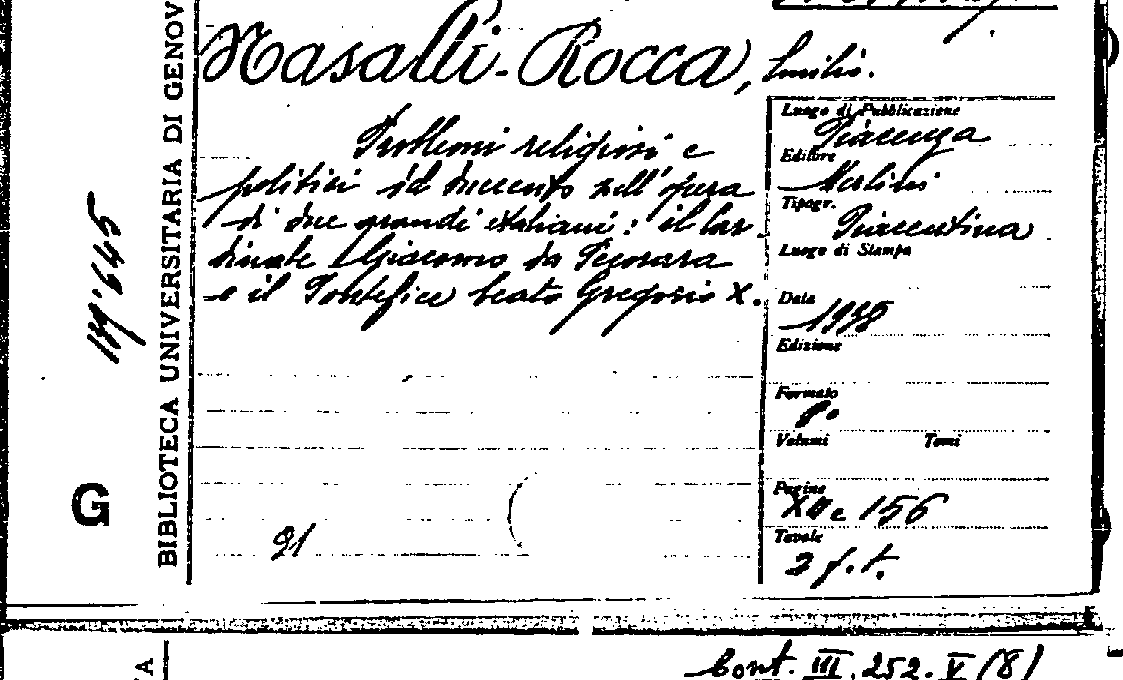 Nasalli-Rocca, Emilio.
Problemi religiosi e
politici del duecento nell'opera
di due grandi italiani: il Car-
dinale Giacomo da Pecorara
e il Pontefice beato Gregorio X.
91
Luogo di Pubblicazione
Piacenza
Editore
Merlini
Tipogr.
Piacentina
Luogo di Stampa
Data
1938
Edizione
Formato
8º
Volumi Tomi
Pagine
XII e 156
Tavole
2 f.t.
BIBLIOTECA UNIVERSITARIA DI GENOV
G
Cont. III. 252. V (8)
TA